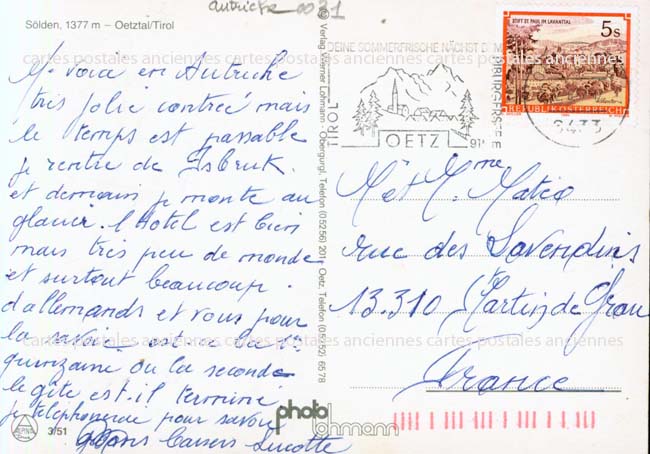 Autriche
Sölden, 1377 m – Oetztal/Tirol
cartes postales anciennes cartes postales anciennes cartes postales anciennes
Me voici en Autriche
très jolie contrée mais
le temps est passable
je rentre de Isbruk
et demain je monte au
glacier. l'Hotel est bien
mais très peu de monde
et surtout beaucoup
d'allemands et vous pour
la savoie est-ce la 1re
quinzaine ou la seconde
le gîte est-il terminé
je téléphonerai pour savoir
Bons Baisers Lucette
3/51
© Verlag Werner Lohmann · Obergurgl, Telefon (05256) 201, Oetz, Telefon (05252) 6578
photo
lohmann
DEINE SOMMERFRISCHE NÄCHST DEM
TIROL
OETZ
6433
STIFT ST. PAUL IM LAVANTTAL
5s
REPUBLIK ÖSTERREICH
Mr et Mme Mateo
rue des Lavandins
13.310 St Martin de Crau
France